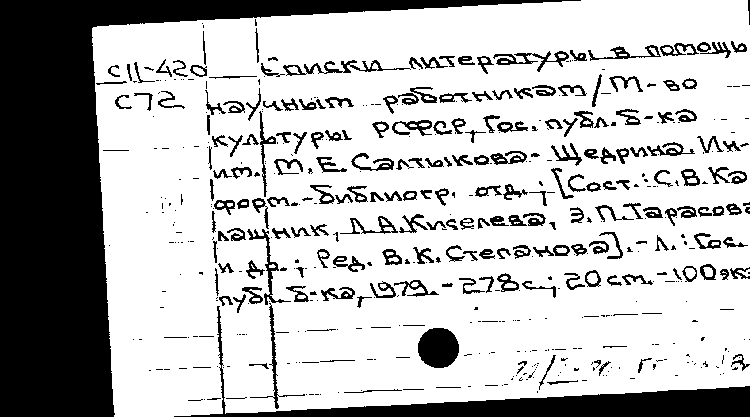 С11-420 Списки литературы в помощь
С72 научным работникам / М-во
культуры РСФСР, Гос. публ. б-ка
им. М.Е. Салтыкова-Щедрина. Ин-
форм.-библиогр. отд.; [Сост.: С.В. Ка
лашник, Л.А. Киселева, Э.П. Тарасова
и др.; Ред. В.К. Степанова]. - Л.: Гос.
публ. б-ка, 1979. - 278 с.; 20 см. - 100 экз